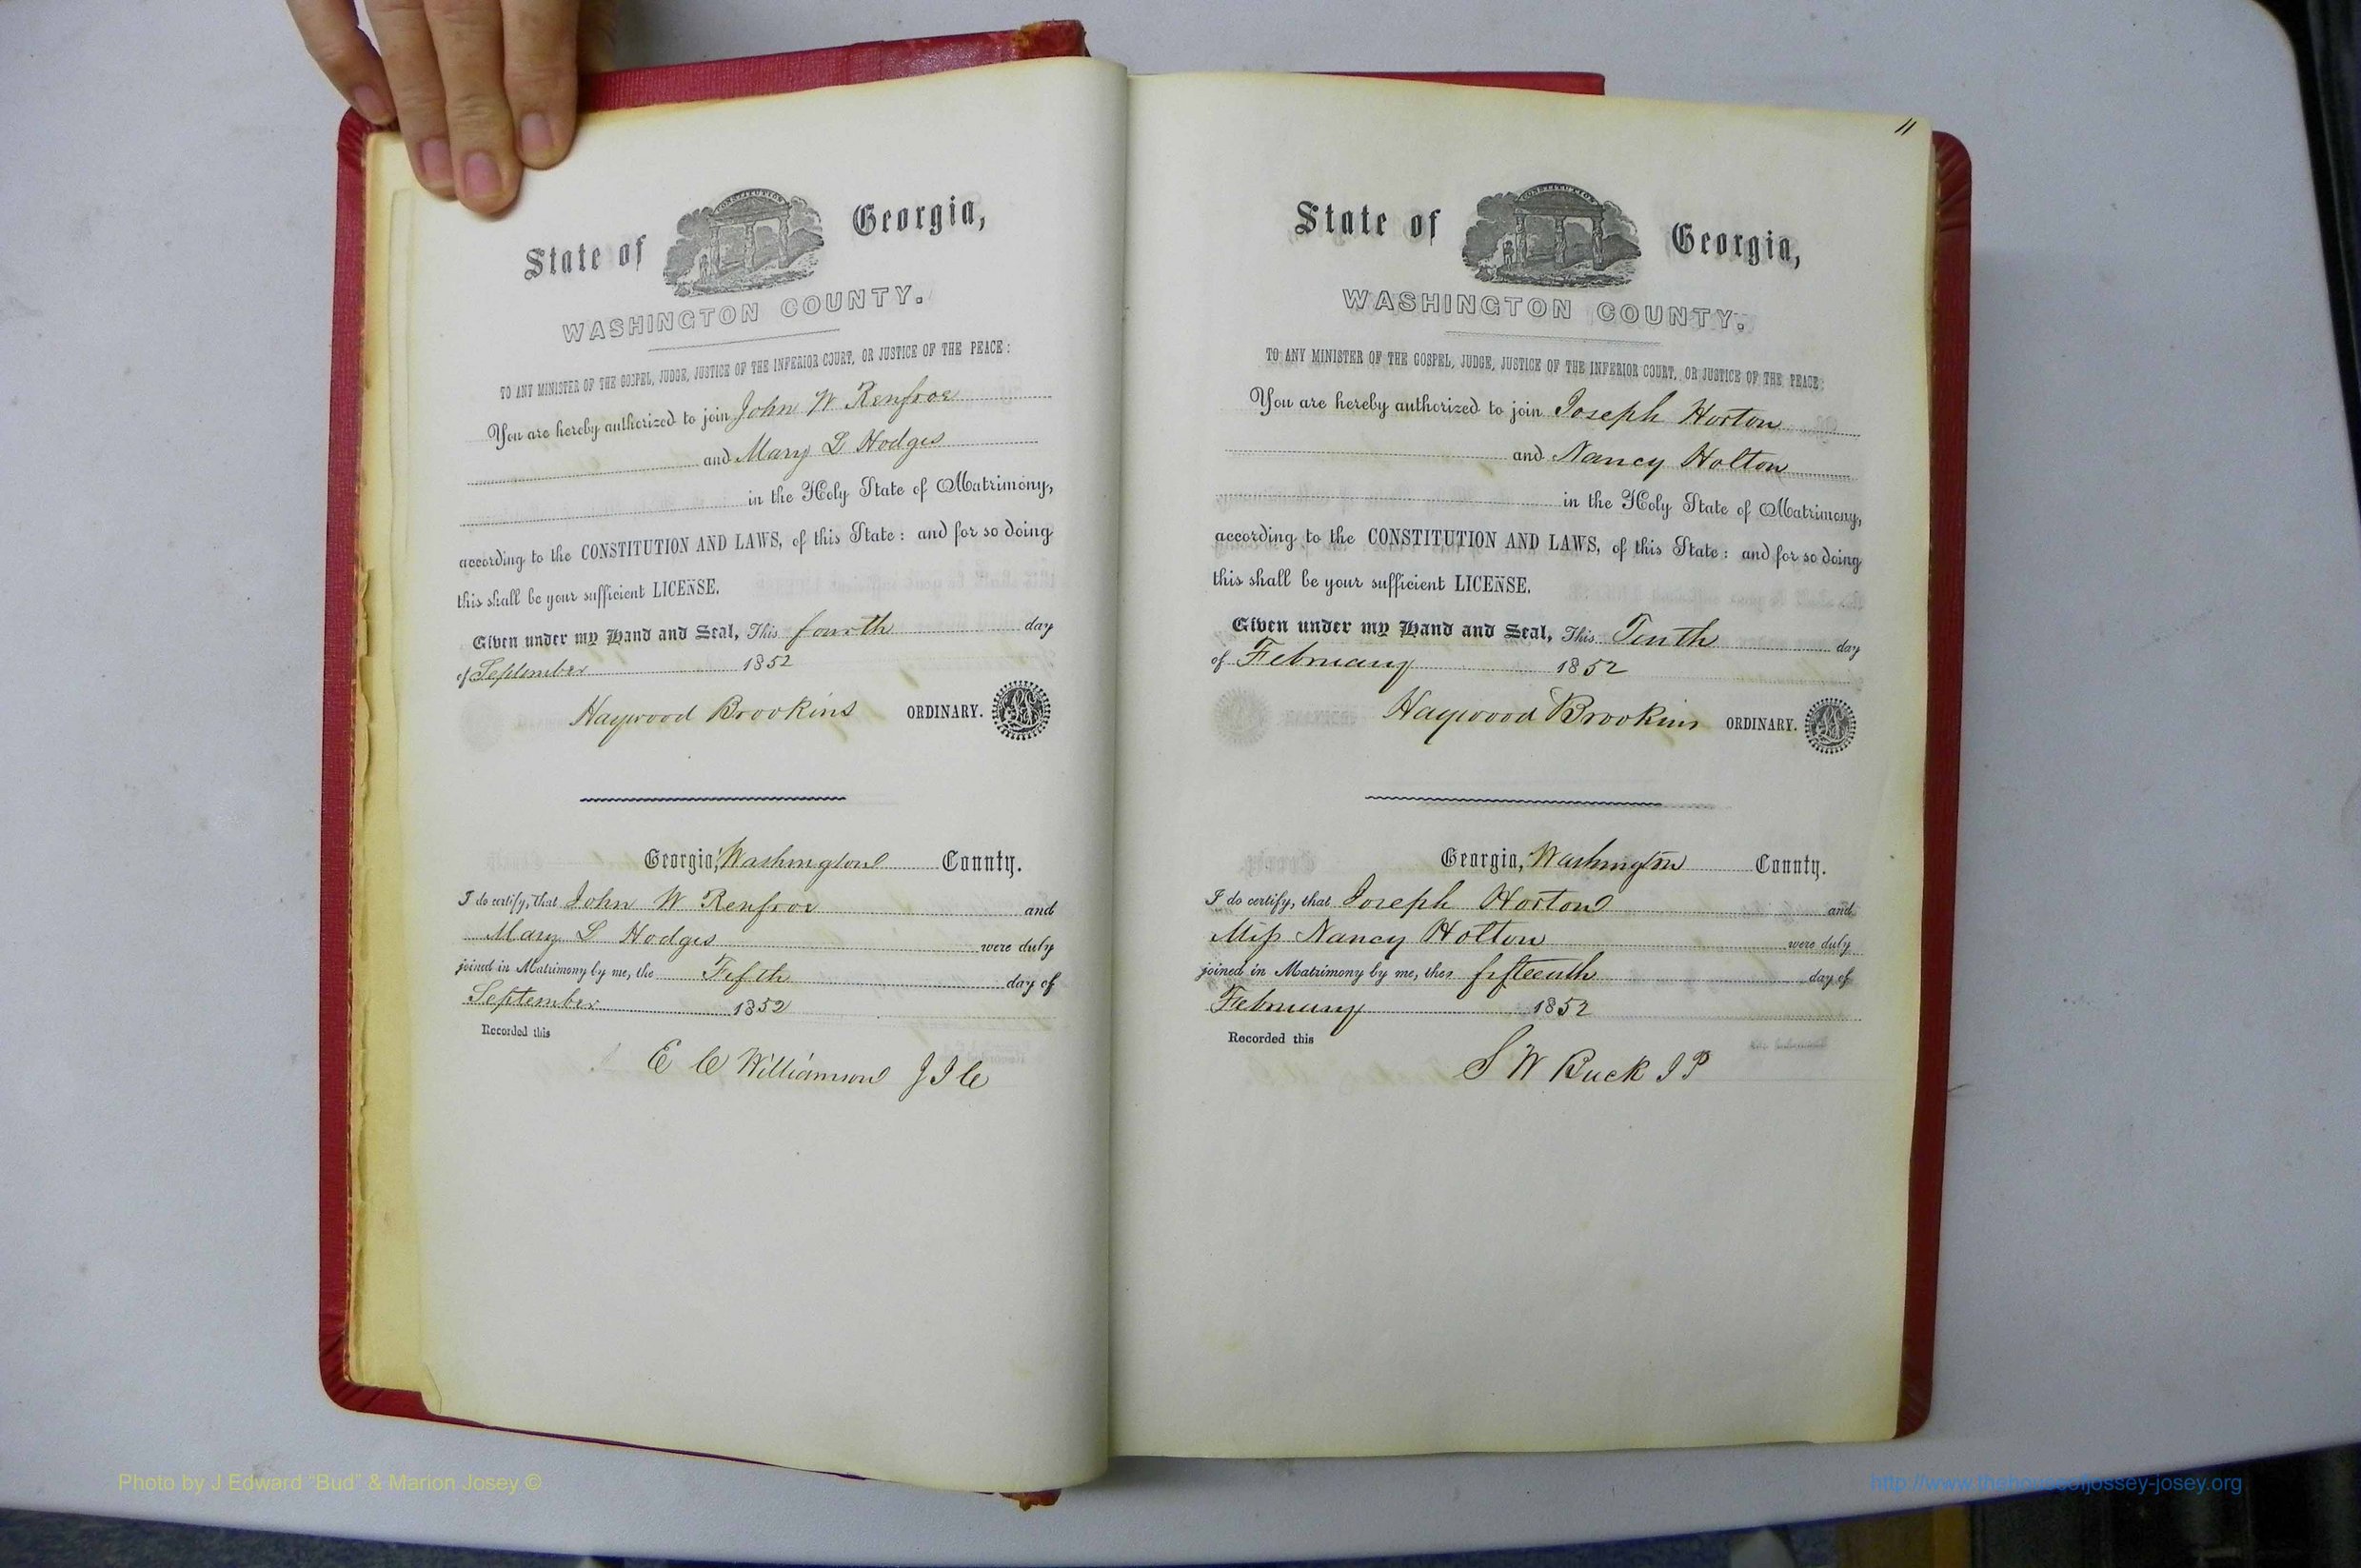 State of Georgia,
CONSTITUTION
WASHINGTON COUNTY.
TO ANY MINISTER OF THE GOSPEL, JUDGE, JUSTICE OF THE INFERIOR COURT, OR JUSTICE OF THE PEACE:
You are hereby authorized to join John W Renfroe
and Mary L Hodges
in the Holy State of Matrimony,
according to the CONSTITUTION AND LAWS, of this State: and for so doing
this shall be your sufficient LICENSE.
Given under my Hand and Seal, This fourth day
of September 1852
Haywood Brookins ORDINARY.
Georgia, Washington County.
I do certify, that John W Renfroe and
Mary L Hodges were duly
joined in Matrimony by me, the Fifth day of
September 1852
Recorded this
E C Williamson J I C
11
State of Georgia,
CONSTITUTION
WASHINGTON COUNTY.
TO ANY MINISTER OF THE GOSPEL, JUDGE, JUSTICE OF THE INFERIOR COURT, OR JUSTICE OF THE PEACE:
You are hereby authorized to join Joseph Horton
and Nancy Holton
in the Holy State of Matrimony,
according to the CONSTITUTION AND LAWS, of this State: and for so doing
this shall be your sufficient LICENSE.
Given under my Hand and Seal, This Tenth day
of February 1852
Haywood Brookins ORDINARY.
Georgia, Washington County.
I do certify, that Joseph Horton and
Miss Nancy Holton were duly
joined in Matrimony by me, the fifteenth day of
February 1852
Recorded this
S W Buck J P
Photo by J Edward "Bud" & Marion Josey ©
http://www.thehouseofjossey-josey.org